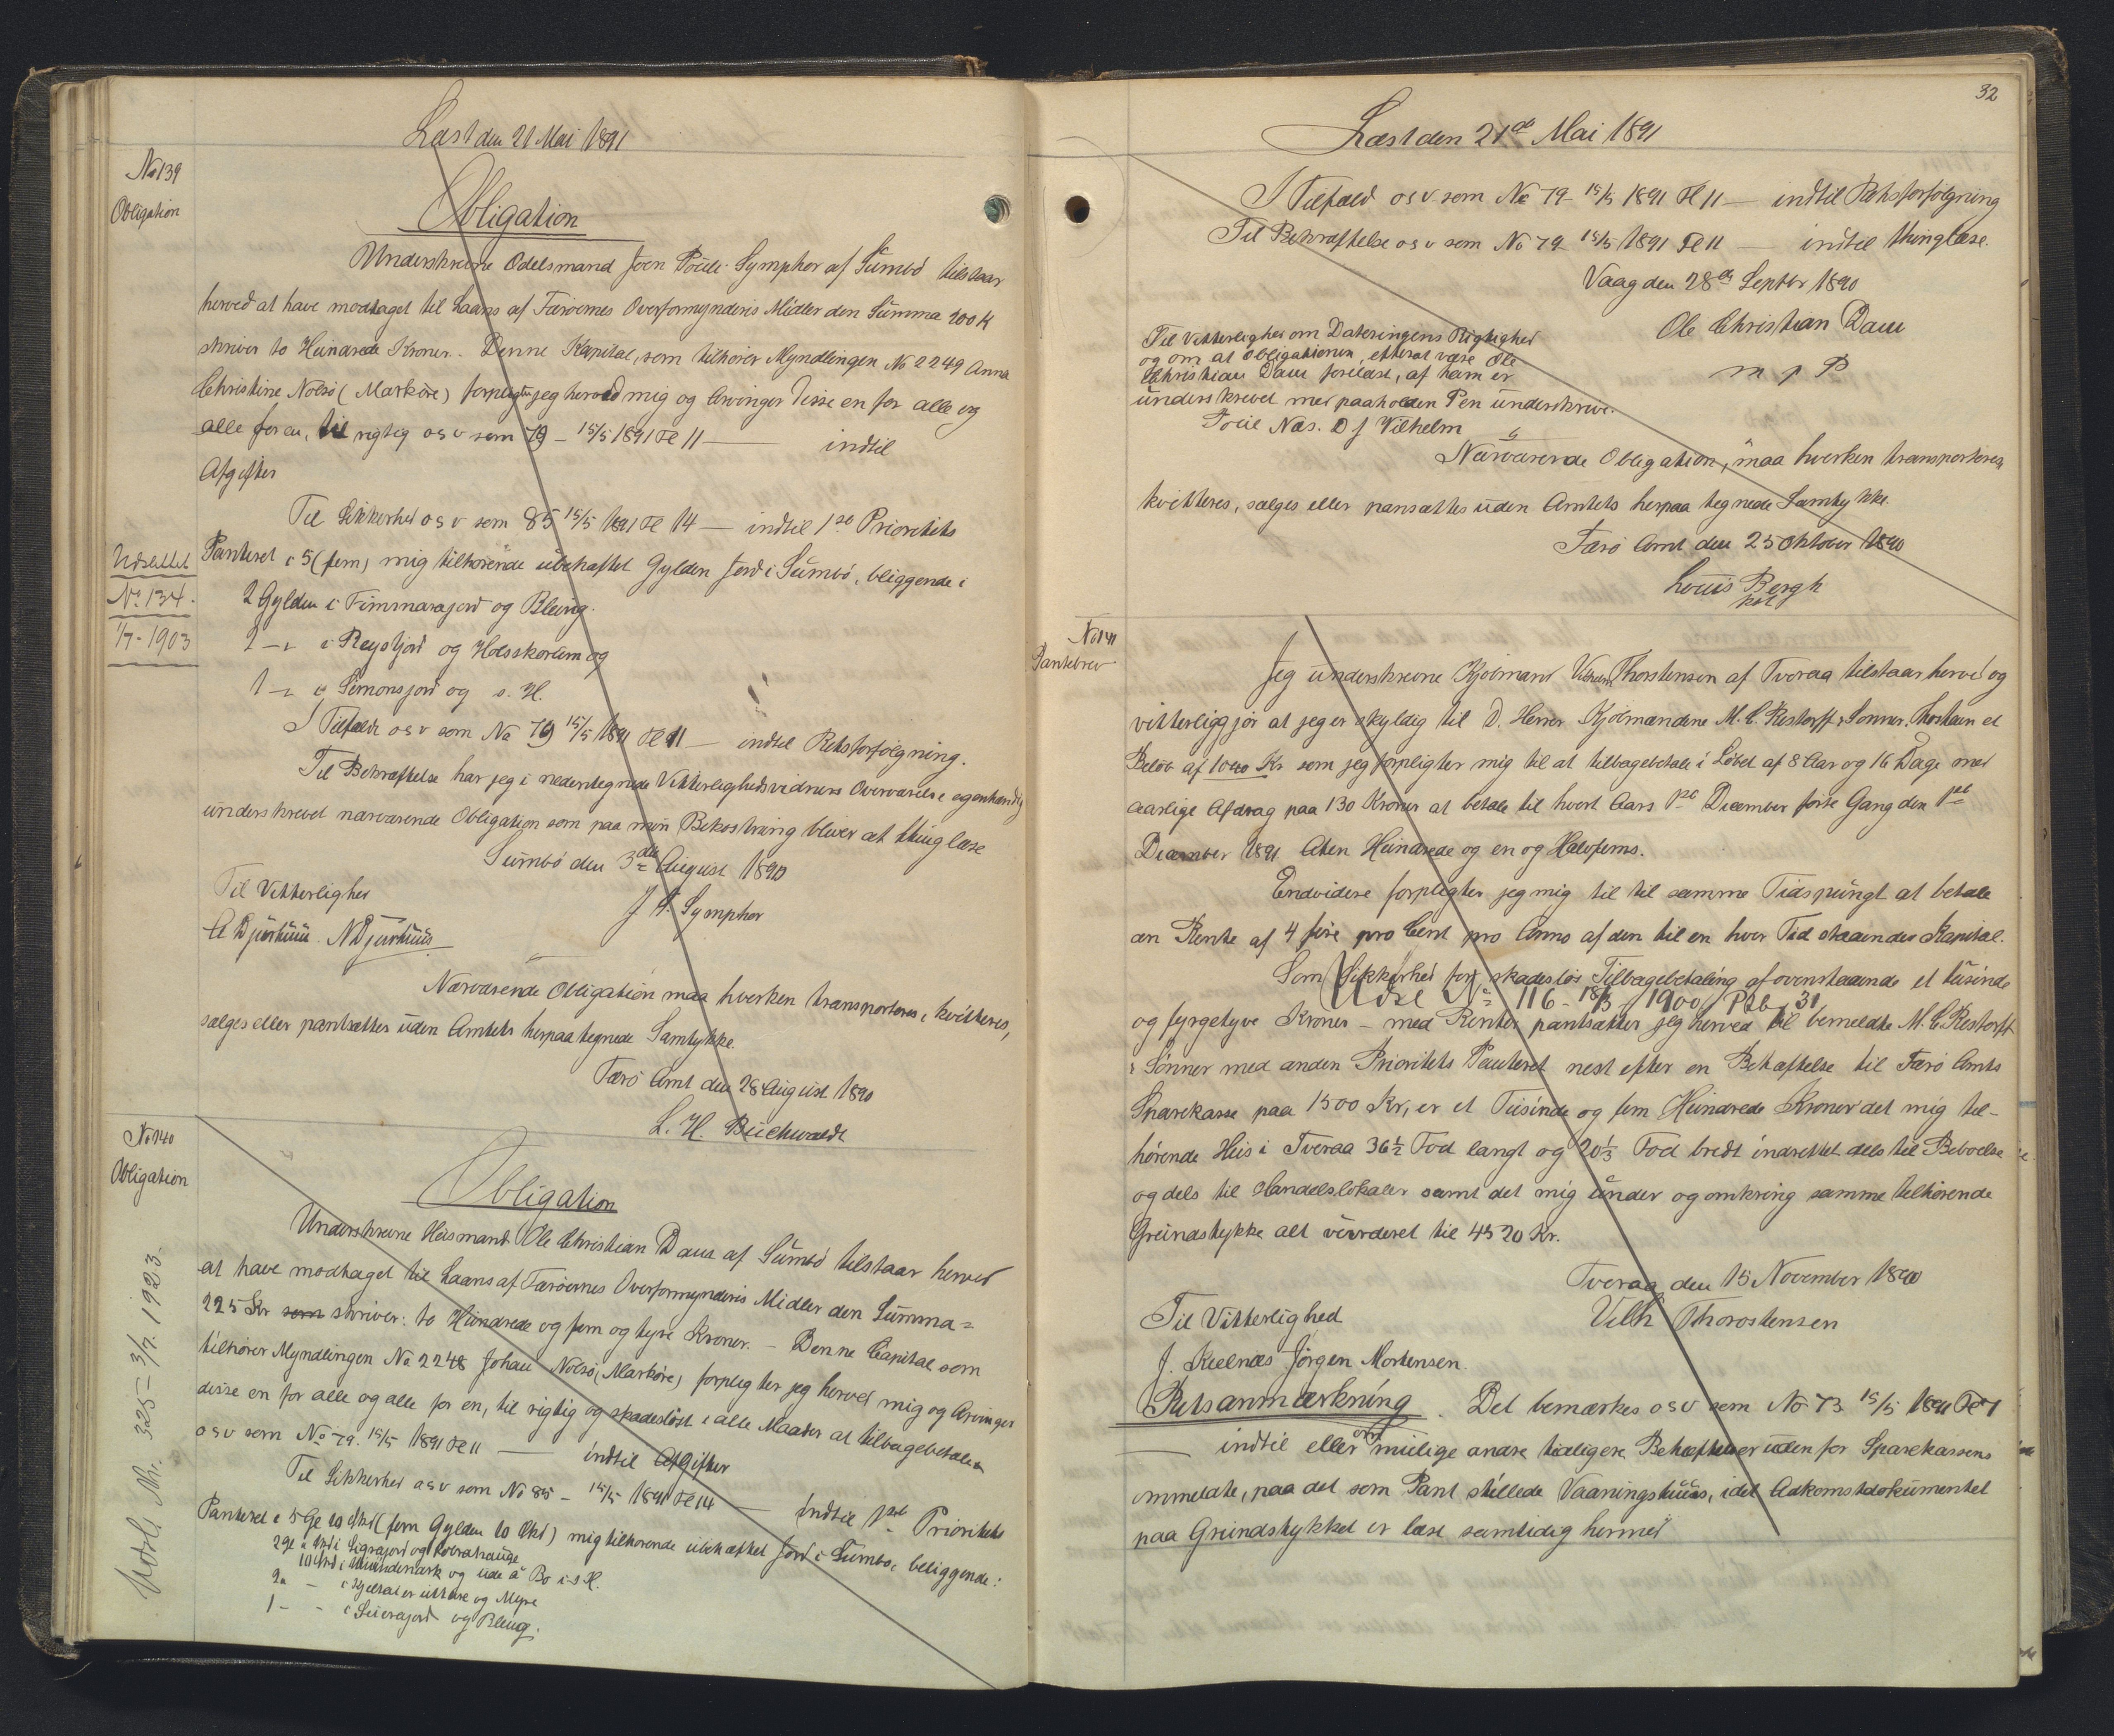 Læst den 21 Mai 1891
No 139
Obligation
Obligation
Underskrevne Odelsmand Joen Poule Symphor af Sumbö tilstaar
herved at have modtaget til Laans af Færöernes Overformynderis Midler den Summa 200 K
skriver to Hundrede Kroner. Denne Kapital, som tilhörer Myndlingen No 2249 Anna
Christine Nolsö (Marköre) forpligter jeg herved mig og Arvinger disse en for alle og
alle for en, til rigtig osv som 79 - 15/5 1891 Fl 11 — indtil
Afgifter
Til Sikkerhed osv som 85 15/5 1891 Fl 14 — indtil 1ste Prioritets
Panteret i 5 (fem) mig tilhörende ubehæftet Gylden Jord i Sumbö, bliggende i
2 Gylden i Fimmarajord og Bleing.
2 — " i Reystjord og Holsskorum og
1 — " i Simonsjord og s. H.
I Tilfælde osv som No 79 15/5 1891 Fl 11 — indtil Retsforfölgning.
Til Bekræftelse har jeg i nedentegnede Vitterlighedsvidners Overværelse egenhændig
underskrevet nærværende Obligation som paa min Bekostning bliver at thinglæse
Sumbö den 3die August 1890
Til Vitterlighed
J P. Symphor
A Djurhuus. N Djurhuus
Nærværende Obligation maa hverken transporteres, kvitteres,
sælges eller pantsættes uden Amtets herpaa tegnede Samtykke.
Færö Amt den 28 August 1890
L. H. Buchwaldt
Udslettet
No 134.
1/7 - 1903
No 140
Obligation
Obligation
Underskrevne Huusmand Ole Christian Daue af Sumbö tilstaar herved
at have modtaget til Laans af Færöernes Overformynderis Midler den Summa =
225 Kr som skriver: to Hundrede og fem og tyve Kroner. - Denne Capital som
tilhörer Myndlingen No 2248 Johan Nolsö (Marköre) forpligter jeg herved mig og Arvinger
disse en for alle og alle for en, til rigtig og skadeslöst i alle Maader at tilbagebetale
osv som No 79. 15/5 1891 Fl 11 — indtil Afgifter
Til Sikkerhed osv som No 85 - 15/5 1891 Fl 14 — Indtil 1ste Prioritets
Panteret i 5 Gl 10 Skd (fem Gylden 10 Skd) mig tilhörende ubehæftet Jord i Sumbö, beliggende:
og ude á Bö i s H.
og Myre
1 - - i og Bleng.
Udsl. Nr. 325 - 3/7. 1923.
32
Læst den 21de Mai 1891
I Tilfæld osv som No 79 15/5 1891 Fl 11 — indtil Retsforfölgning
Til Bekræftelse osv som No 79 15/5 1891 Fl 11 — indtil thinglæse.
Vaag den 28de Septbr 1890
Ole Christian Daue
m p P
Til Vitterlighed om Dateringens Rigtighed
og om at Obligationen, efterat være Ole
Christian Daue forelæst, af ham er
underskrevet med paaholden Pen underskrive.
Næs. D J Vilhelm
Nærværende Obligation, maa hverken transporteres,
kvitteres, sælges eller pansættes uden Amtets herpaa tegnede Samtykke.
Færö Amt den 25 Oktober 1890
Louis Bergh
kst
No 141
Pantebrev
Jeg underskrevne Kjöbmand Vilhelm Thorstensen af Tveraa tilstaar herved og
vitterliggjör at jeg er skyldig til D. Herrer Kjöbmændene M. C. Restorff & Sönner, Thorshavn et
Belöb af 1040 Kr som jeg forpligter mig til at tilbagebetale i Löbet af 8 Aar og 16 Dage med
aarlige Afdrag paa 130 Kroner at betale til hvert Aars 1ste December förste Gang den 1ste
December 1891 Aten Hundrede og en og Halvfems.
Endvidere forpligter jeg mig til til samme Tidspungt at betale
en Rente af 4 fire pro Cent pro Anno af den til en hver Tid staaendes Kapital.
Som Sikkerhed for skadeslös Tilbagebetaling af ovenstaaende et tusinde
Udsl No 116 - 18/3 1900 Ptb 31
og fyrgetyve Kroner - med Renter pantsætter jeg herved til bemeldte M. C. Restorff
& Sönner med anden Prioritets Panteret nest efter en Behæftelse til Færö Amts
Sparekasse paa 1500 Kr, er et Tusinde og fem Hundrede Kroner det mig til-
hörende Hus i Tveraa 36½ Fod langt og 20⅓ Fod bredt indrettet dels til Beboelse
og dels til Handelslokaler samt det mig under og omkring samme tilhörende
Grundstykke alt vurderet til 4520 Kr.
Tveraa den 15 November 1890
Vilh Thorostensen
Til Vitterlighed
J. Kielnæs Jörgen Mortensen.
Retsanmærkning. Det bemærkes osv som No 73 15/5 1891 Fl 7
— indtil eller mulige andre tidligere Behæftelser uden for Sparekassens
ommeldte, paa det som Pant stillede Vaaningshuus, idet Adkomstdokumentet
paa Grundstykket er læst samtidig hermed